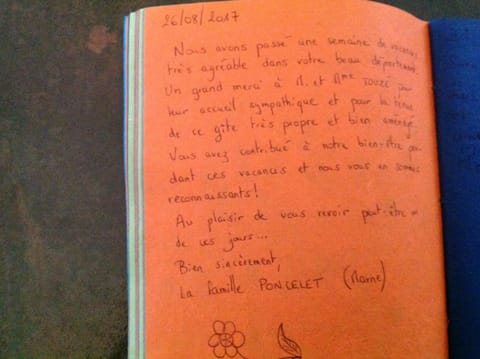 26/08/2017
Nous avons passé une semaine de vacances
très agréable dans votre beau département.
Un grand merci à M. et Mme TOUZÉ pour
leur accueil sympathique et pour la tenue
de ce gîte très propre et bien aménagé.
Vous avez contribué à notre bien-être pen-
dant ces vacances et nous vous en sommes
reconnaissants !
Au plaisir de vous revoir peut-être un
de ces jours...
Bien sincèrement,
La famille PONCELET (Marne)